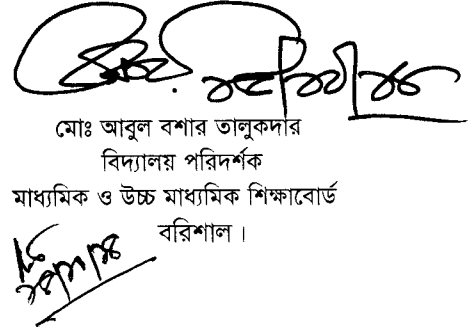 মোঃ আবুল বশার তালুকদার
বিদ্যালয় পরিদর্শক
মাধ্যমিক ও উচ্চ মাধ্যমিক শিক্ষাবোর্ড
বরিশাল।